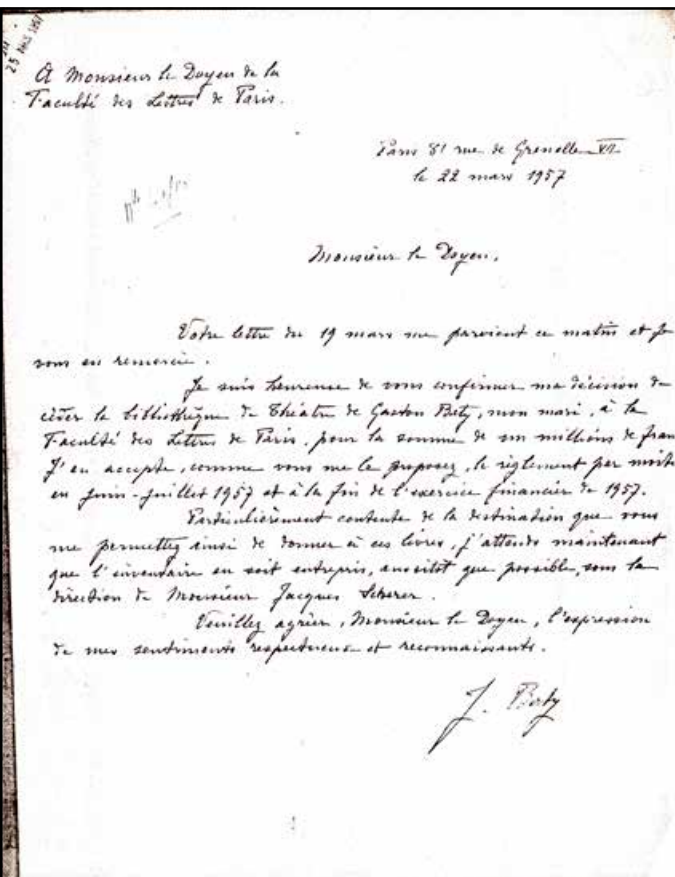 25 MARS 1957
A Monsieur le Doyen de la
Faculté des Lettres de Paris.
Paris 81 rue de Grenelle
le 22 mars 1957
Monsieur le Doyen,
Votre lettre du 19 mars me parvient ce matin et je
vous en remercie.
Je suis heureuse de vous confirmer ma décision de
céder la bibliothèque de Théâtre de Gaston Baty, mon mari, à la
Faculté des Lettres de Paris, pour la somme de millions de fran
J'en accepte, comme vous me le proposez, le règlement par moiti
en juin-juillet 1957 et à la fin de l'exercice financier de 1957.
Particulièrement contente de la destination que vous
me permettez ainsi de donner à ces livres, j'attends maintenant
que l'inventaire en soit entrepris, aussitôt que possible, sous la
direction de Monsieur Jacques Scherer.
Veuillez agréer, Monsieur le Doyen, l'expression
de mes sentiments respectueux et reconnaissants.
J. Baty